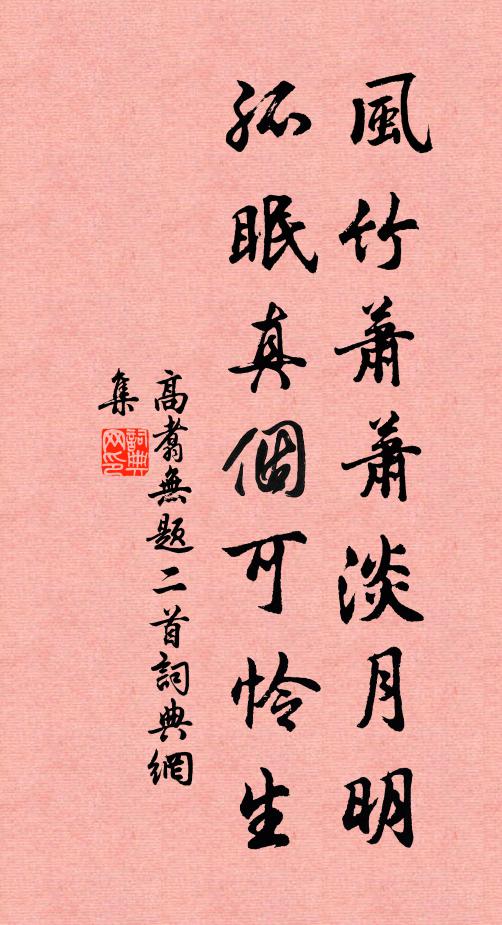 風竹蕭蕭淡月明
孤眠真個可怜生
高翥無题二首詞典網
集
詞典网印